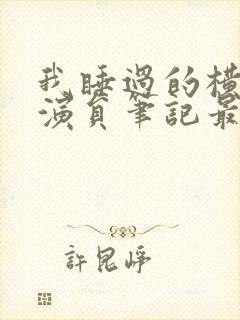 我睡過的橫
演員筆記最
許昆崢